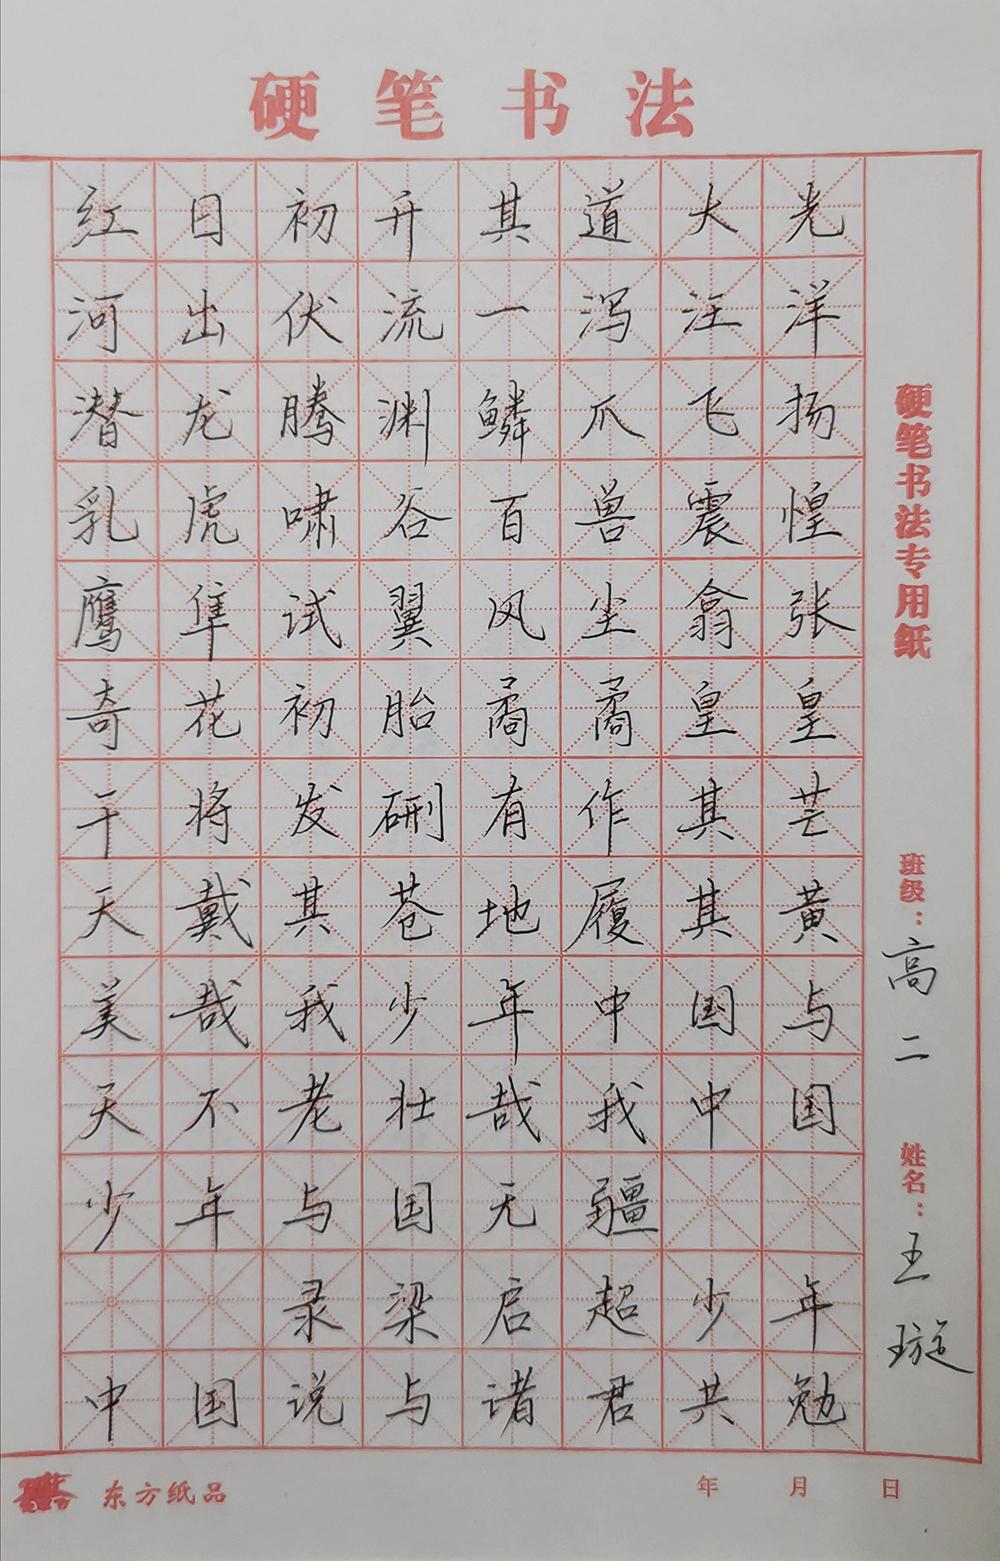 硬笔书法
红日初升其道大光
河出伏流一泻汪洋
潜龙腾渊鳞爪飞扬
乳虎啸谷百兽震惶
鹰隼试翼风尘翕张
奇花初胎矞矞皇皇
干将发硎有作其芒
天戴其苍地履其黄
美哉我少年中国与
天不老壮哉我中国
少年与国无疆
录梁启超少年
中国说与诸君共勉
硬笔书法专用纸
班级：高二
姓名：王璇
东方纸品
年 月 日